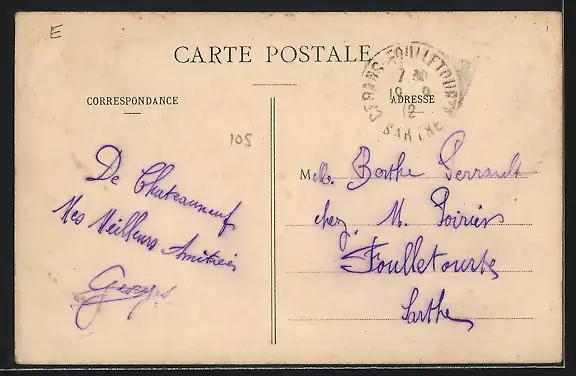 E
CARTE POSTALE
CERANS-FOULLETOURTE
7 30
19 9
12
SARTHE
CORRESPONDANCE
ADRESSE
105
De Chateauneuf
Mes Meilleurs Amitiés
Georges
Melle. Berthe Perrault
chez M. Poirier
Foulletourte
Sarthe